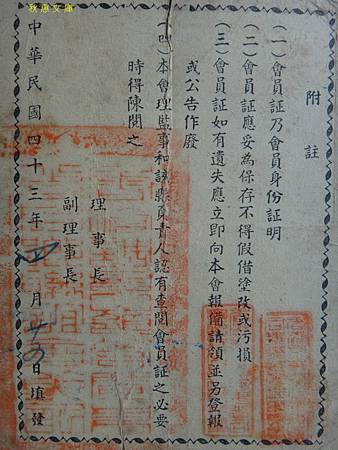 秋惠文庫
附註
(一)會員証乃會員身份証明
(二)會員証應妥為保存不得假借塗改或污損
(三)會員証如有遺失應立即向本會報備請領並另登報
或公告作廢
(四)本會理監事和該縣負責人認有查閱會員証之必要
時得陳閱之
理事長
副理事長
中華民國四十三年四月廿五日填發